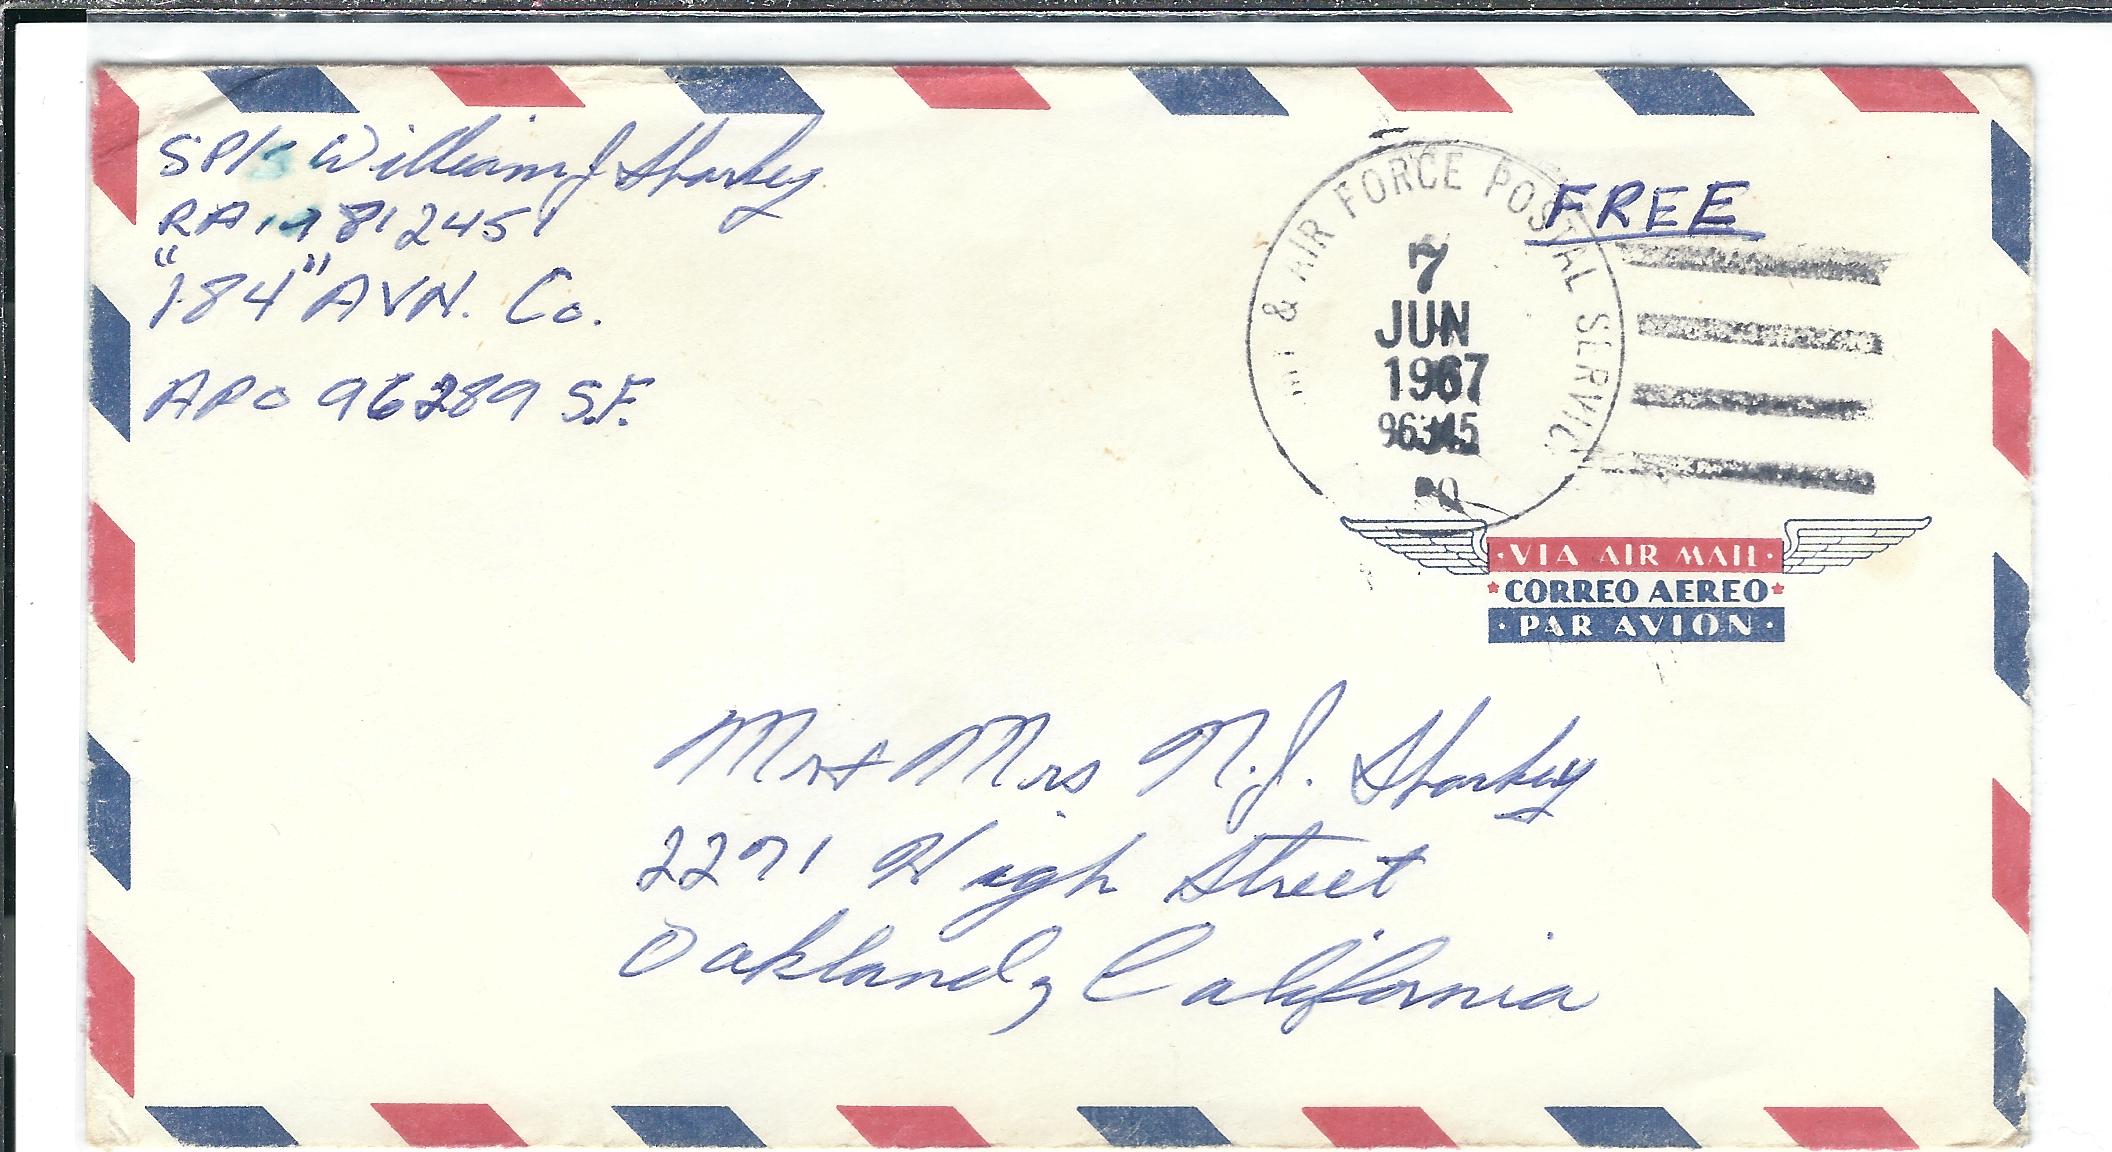 SP/5 William J Sharkey
RA 19812451
"184" AVN. Co.
APO 96289 S.F.
& AIR FORCE POSTAL SERVICE
7
JUN
1967
96345
FREE
VIA AIR MAIL
CORREO AEREO
PAR AVION
Mr + Mrs N.J. Sharkey
2271 High Street
Oakland, California